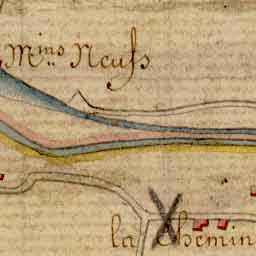 M.ins Neufs
la Chemin